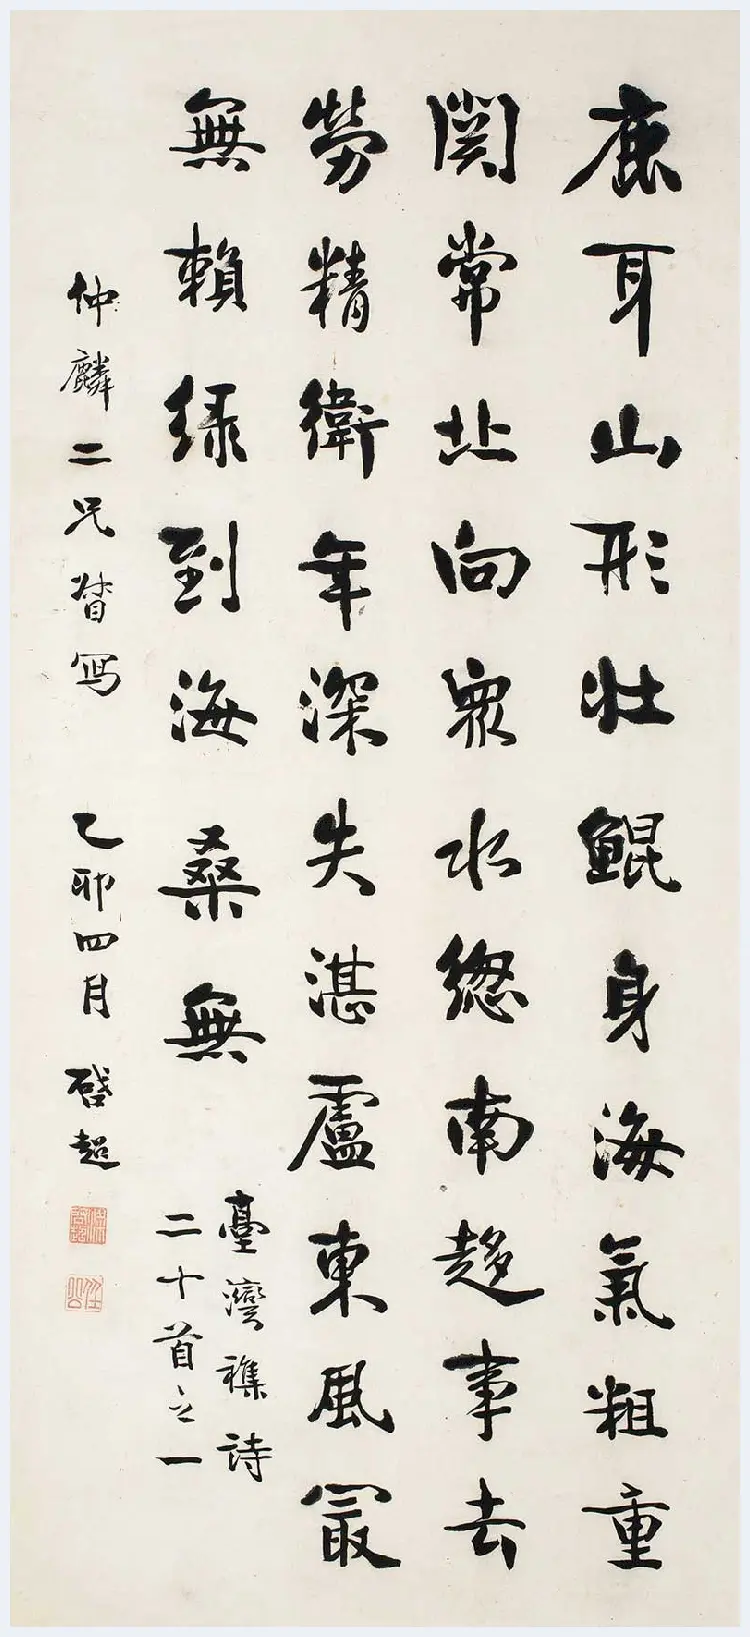 鹿耳山形壯鯤身海氣粗重
關常北向衆水總南趨事去
勞精衛年深失湛盧東風最
無賴綠到海桑無
臺灣雜詩
二十首之一
仲麟二兄督寫 乙卯四月 啓超